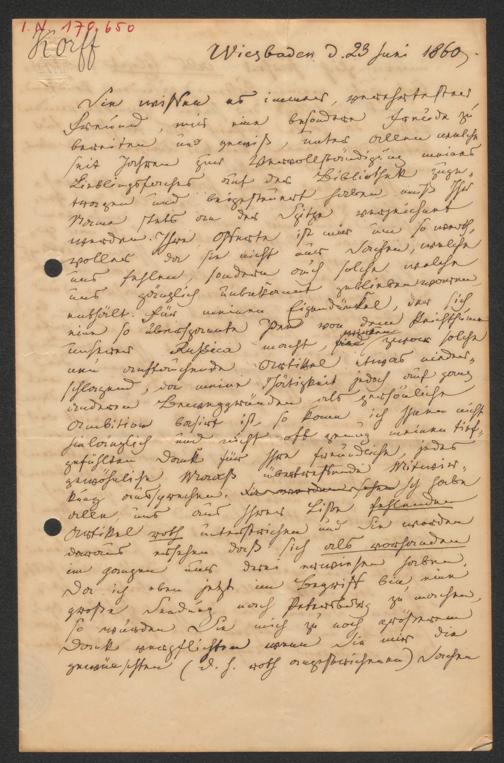 I. N. 179.650
Korff
Wiesbaden d. 23 Juni 1860.
Sie wissen es immer, verehrtester
Freund, mir eine besondere Freude zu
bereiten und gewiß, unter allen welche
seit Jahren zur Vervollständigung meines
Lieblingsfaches auf der Bibliothek zuge-
tragen und beigesteuert haben muß Ihr
Name stets an der Spitze verzeichnet
werden. Ihre Offerte ist mir um so werth-
voller da sie nicht nur Sachen, welche
uns fehlen, sondern auch solche welche
uns gänzlich unbekannt geblieben waren
enthält. Für meinen Eigendünkel, der sich
eine so überspannte Idee von dem Reichthume
unserer Russica macht, wirken zwar solche
neu auftauchende Artikel etwas nieder-
schlagend, da meine Thätigkeit jedoch auf ganz
anderen Beweggründen als persönliche
Ambition basirt ist, so kann ich Ihnen nicht
hinlänglich und nicht oft genug meinen tief-
gefühlten Dank für Ihre freundliche, jedes
gewöhnliche Maaß übertreffende Mitwir-
kung aussprechen. Ich habe
alle uns aus Ihrer Liste fehlenden
Artikel roth unterstrichen und Sie werden
daraus ersehen daß sich als vorhanden
im ganzen nur drei erwiesen haben.
Da ich eben jetzt im Begriff bin eine
große Sendung nach Petersburg zu machen,
so würden Sie mich zu noch größerem
Dank verpflichten wenn Sie mir die
gewünschten (d. h. roth angestrichenen) Sachen